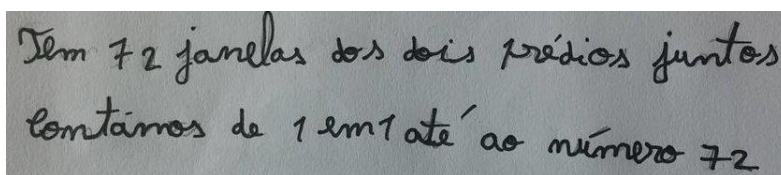 Tem 72 janelas dos dois prédios juntos
Contámos de 1 em 1 até ao número 72